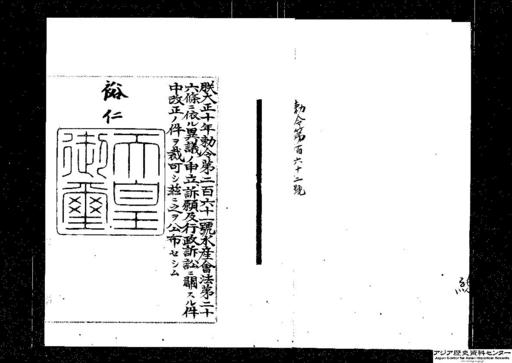 勅令第百六十二號
朕大正十年勅令第二百六十一號水産會法第二十
六條ニ依ル異議ノ申立訴願及行政訴訟ニ關スル件
中改正ノ件ヲ裁可シ玆ニ之ヲ公布セシム
裕仁
天皇
御璽
アジア歴史資料センター
Japan Center for Asian Historical Records